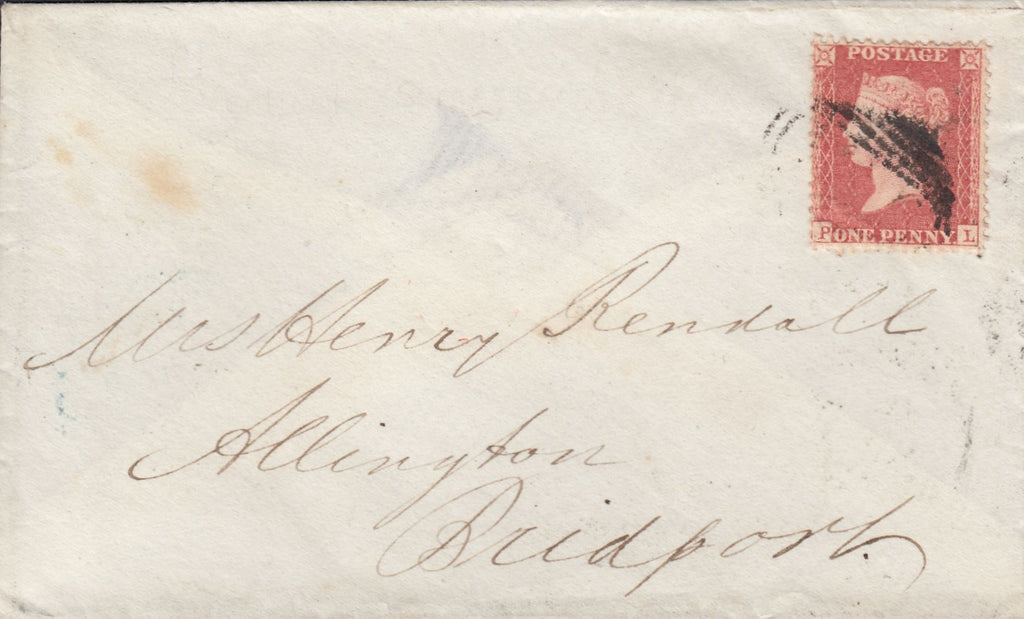 POSTAGE
P ONE PENNY L
Mrs Henry Rendall
Allington
Bridport.